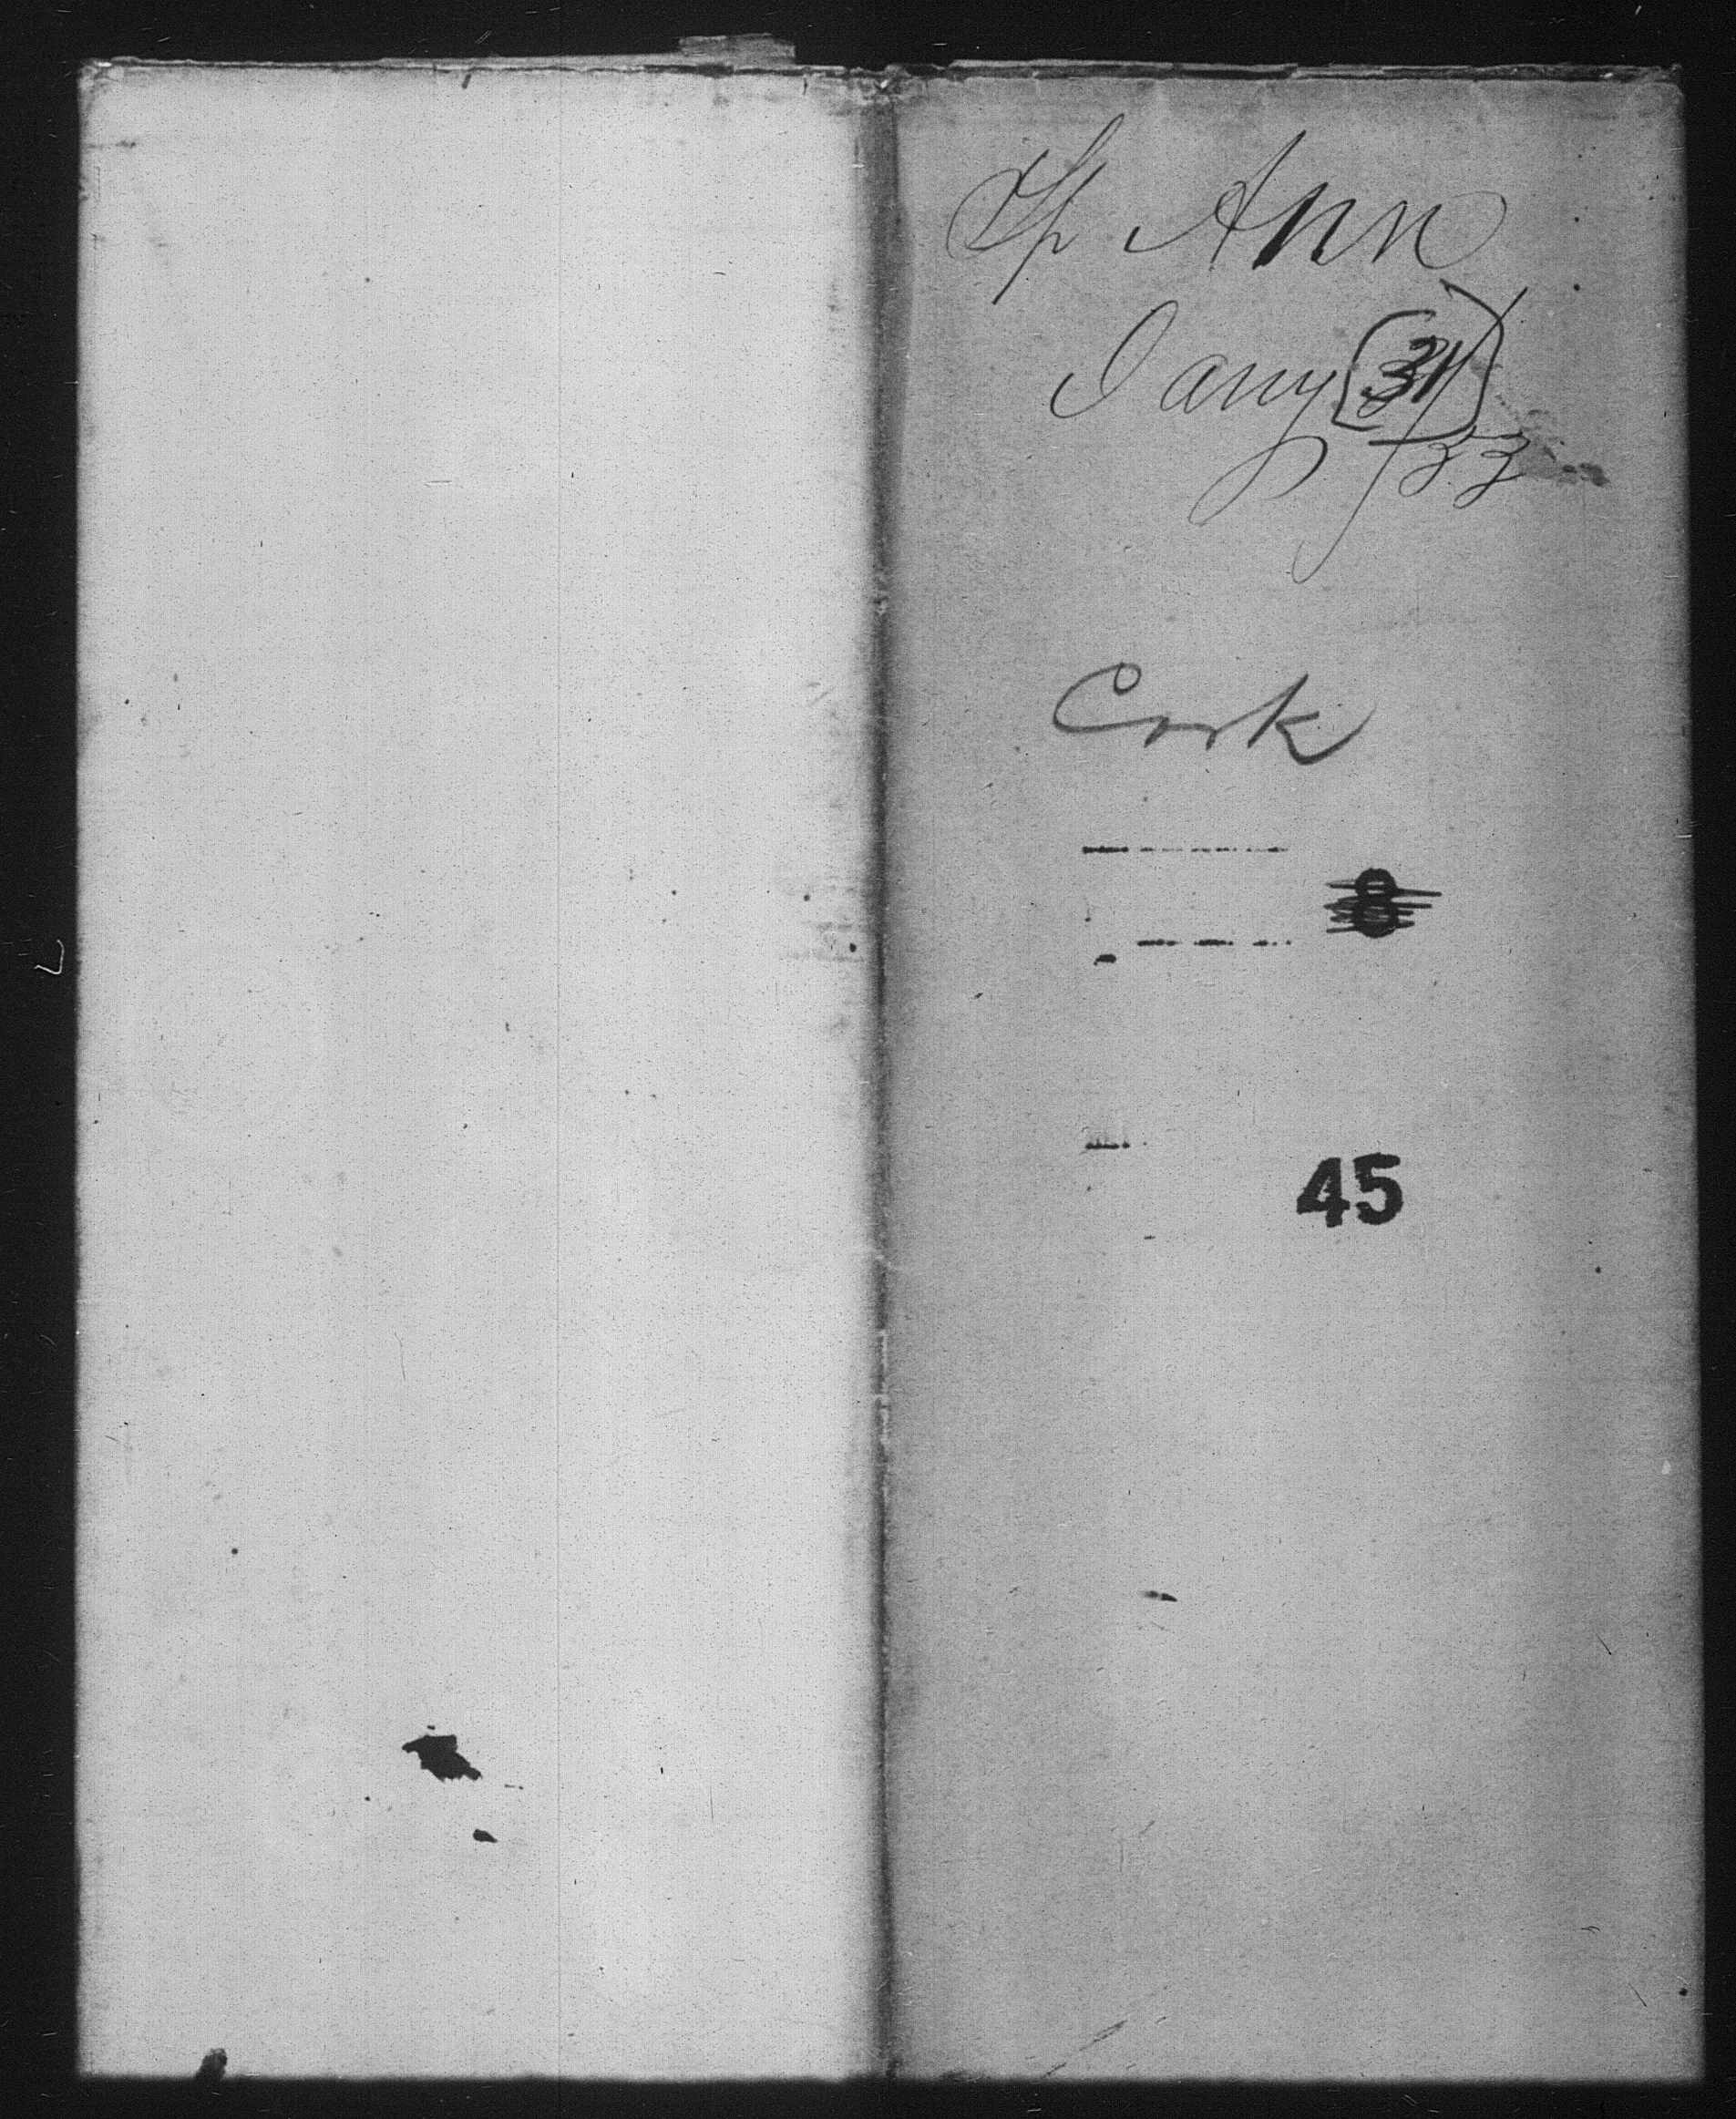 Sp Ann
Jany 31/53
Cork
8
45